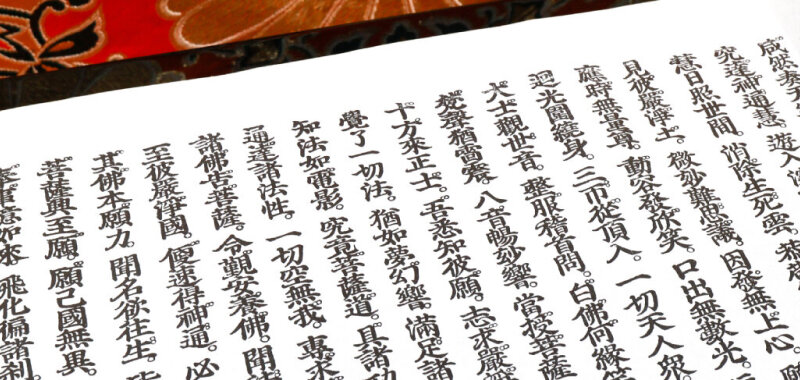 咸然奏天
究達神通慧。遊入
慧日照世間。消除生死雲。
見彼嚴淨土。微妙難思議。因發無上心。願
應時無量尊。動容發欣笑。口出無數光。
迴光圍繞身。三帀從頂入。一切天人眾
大士觀世音。整服稽首問。白佛何緣笑
梵聲猶雷震。八音暢妙響。當授菩薩
十方來正士。吾悉知彼願。志求嚴
覺了一切法。猶如夢幻響。滿足諸
知法如電影。究竟菩薩道。具諸功
通達諸法性。一切空無我。專求
諸佛告菩薩。令覲安養佛。聞
至彼嚴淨國。便速得神通。必
其佛本願力。聞名欲往生。
菩薩興至願。願己國無異。
億如來。飛化徧諸剎